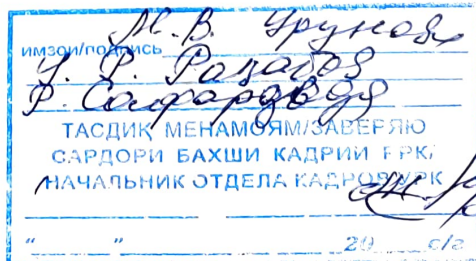 М. В. Урунов
имзои/подпись
У. Р. Раҷабов
Р. Сафарзода
ТАСДИҚ МЕНАМОЯМ/ЗАВЕРЯЮ
САРДОРИ БАХШИ КАДРИИ РРК/
НАЧАЛЬНИК ОТДЕЛА КАДРОВ УРК
"      "      20      с/г